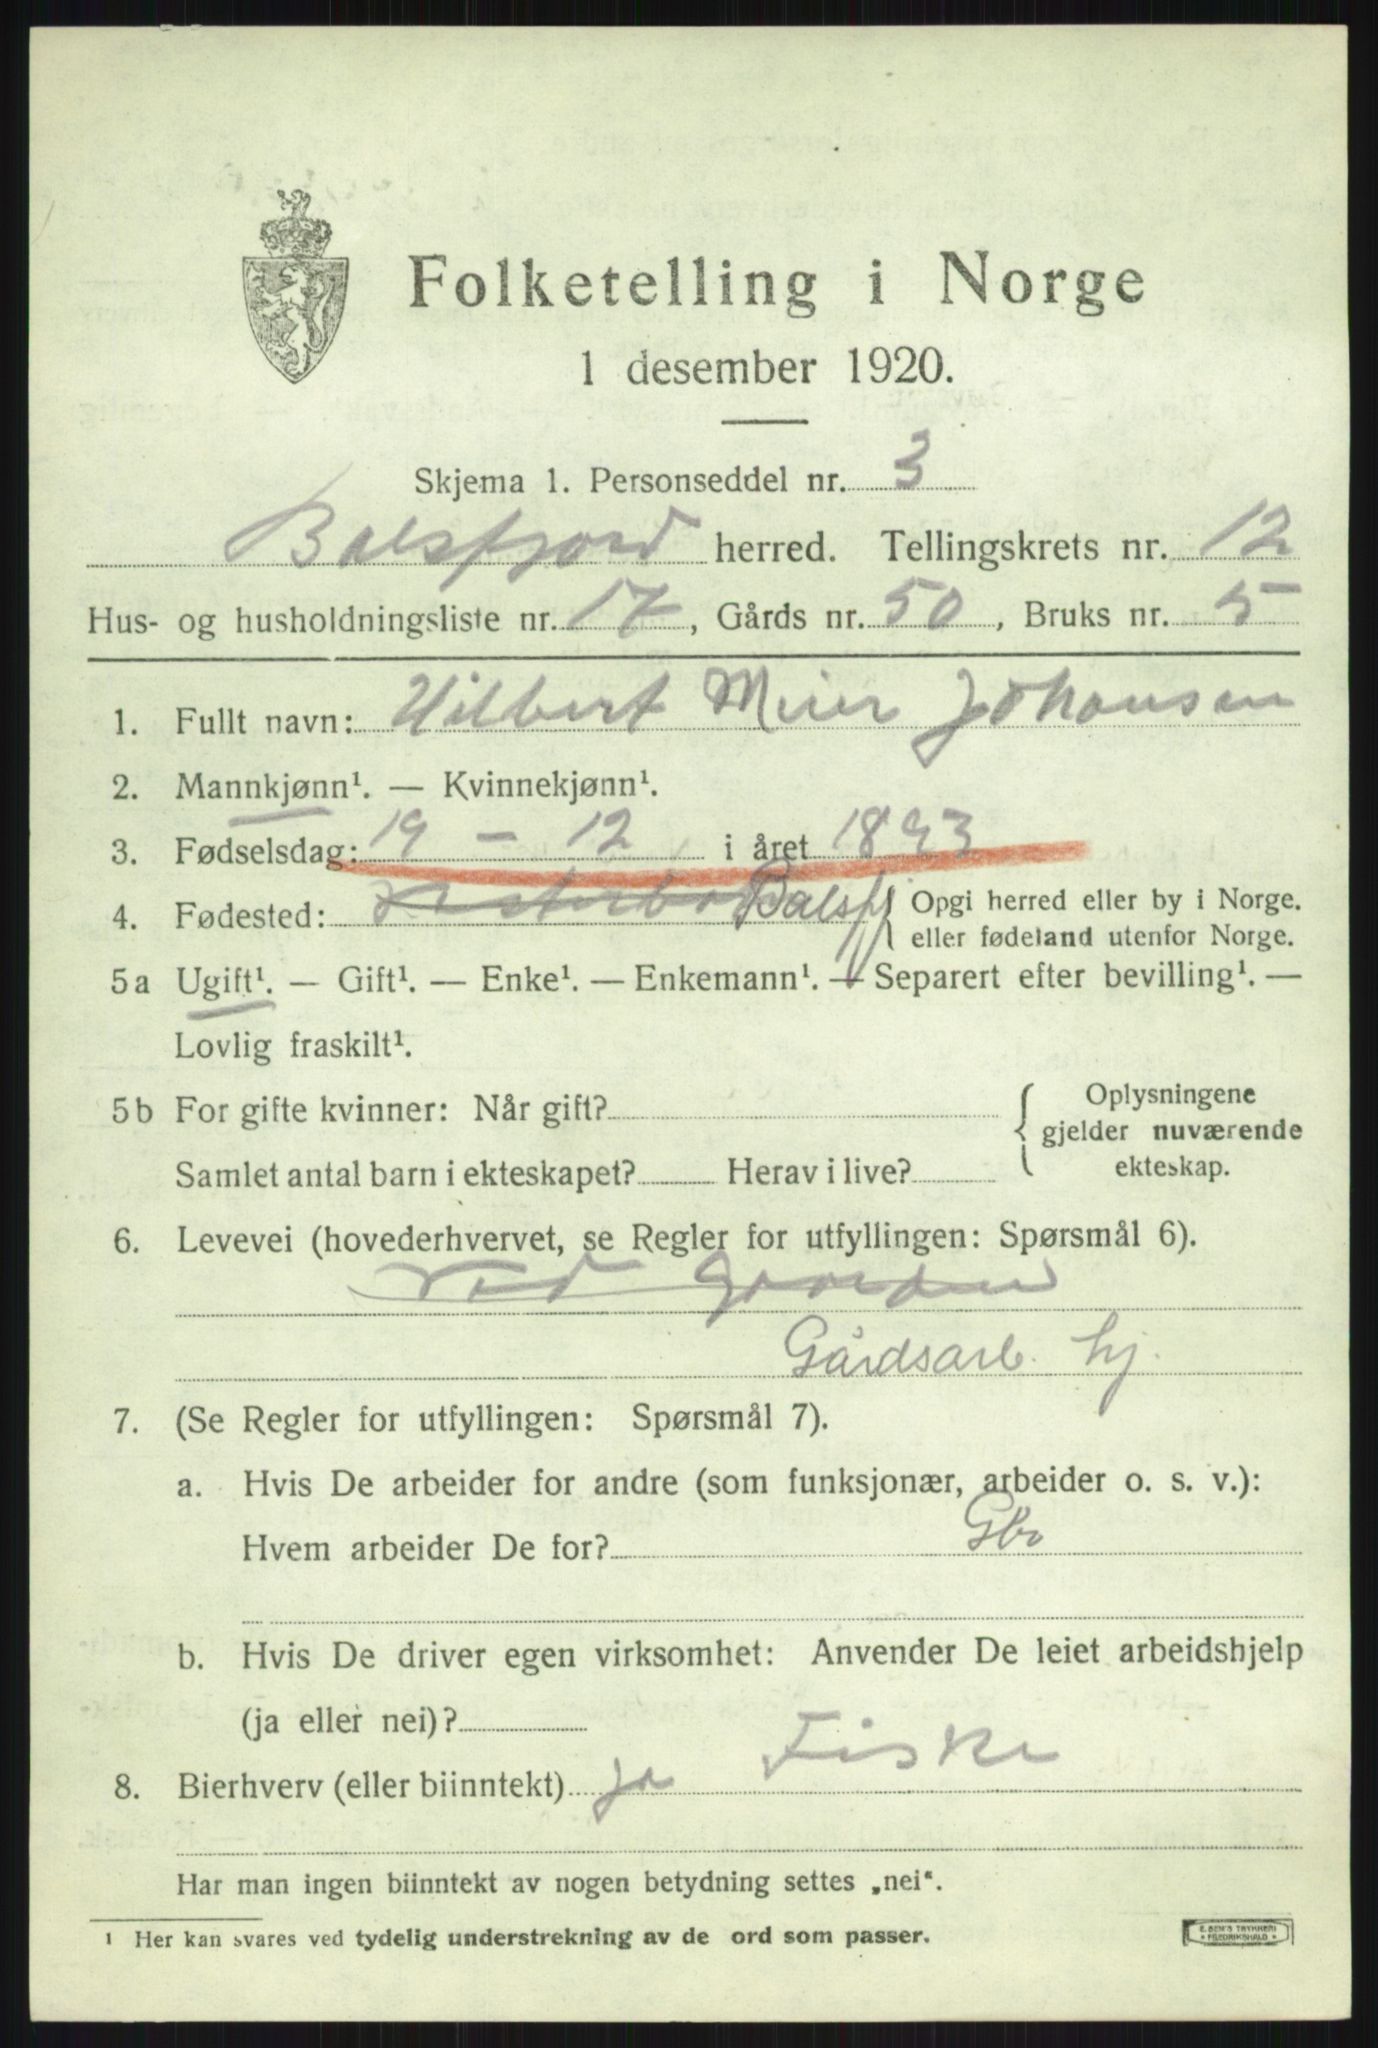 Folketelling i Norge
1 desember 1920.
Skjema 1. Personseddel nr. 3
Balsfjord herred. Tellingskrets nr. 12
Hus- og husholdningsliste nr. 17, Gårds nr. 50, Bruks nr. 5
1. Fullt navn: Hilbert Meier Johansen
2. Mannkjønn¹. — Kvinnekjønn¹.
3. Fødselsdag: 19 - 12 i året 1893
4. Fødested: Balsfj Opgi herred eller by i Norge.
eller fødeland utenfor Norge.
5a Ugift¹. — Gift¹. — Enke¹. — Enkemann¹. — Separert efter bevilling¹. —
Lovlig fraskilt¹.
5b For gifte kvinner: Når gift? Oplysningene
gjelder nuværende
Samlet antal barn i ekteskapet? Herav i live? ekteskap.
6. Levevei (hovederhvervet, se Regler for utfyllingen: Spørsmål 6).
Ved Gaarden
Gårdsarb. hj.
7. (Se Regler for utfyllingen: Spørsmål 7).
a. Hvis De arbeider for andre (som funksjonær, arbeider o. s. v.):
Hvem arbeider De for? Gbr
b. Hvis De driver egen virksomhet: Anvender De leiet arbeidshjelp
(ja eller nei)?
8. Bierhverv (eller biinntekt) ja Fiske
Har man ingen biinntekt av nogen betydning settes „nei“.
¹ Her kan svares ved tydelig understrekning av de ord som passer.
E. SEM'S TRYKKERI
FREDRIKSHALD